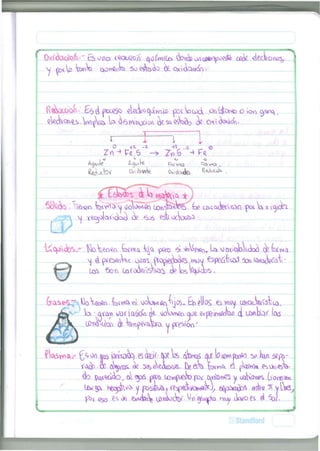 Oxidación.- Es una reacción química donde un compuesto cede electrones,
y por lo tanto aumenta su estado de oxidación.
Reducción.- Es el proceso electroquímico por el cual un átomo o ion gana
electrones. Implica la disminución de su estado de oxidación.
0 +2 -2 +2 -2 0
Zn + Fe S → Zn S + Fe
Agente Agente Forma Forma
Reductor Oxidante Oxidada Reducida
* Estados de la materia *
Sólido.- Tienen forma y volumen constantes. Se caracterizan por la rigidez
y regularidad de sus estructuras.
Líquidos.- No tienen forma fija pero sí volumen. La variabilidad de forma
y el presentar unas propiedades muy específicas son
características de los líquidos.
Gases.- No tienen forma ni volumen fijos. En ellos es muy característica
la gran variación de volumen que experimentan al cambiar las
condiciones de temperatura y presión.
Plasma.- Es un gas ionizado, es decir que los átomos que lo componen se han sepa-
rado de algunos de sus electrones. De esta forma el plasma es un esta-
do parecido al gas pero compuesto por aniones y cationes
carga negativa y positiva, respectivamente), separados entre sí y libres,
por eso es un conductor. Un ejemplo muy claro es el Sol.
Standford